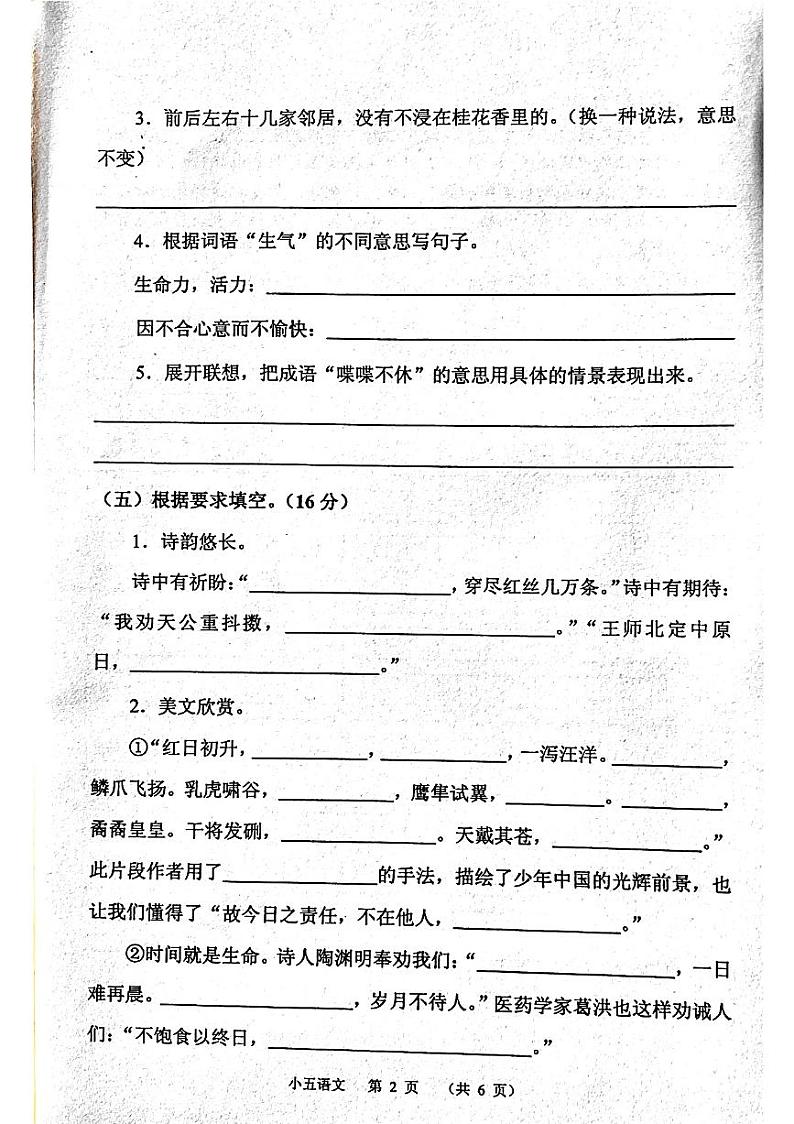 3．前后左右十几家邻居，没有不浸在桂花香里的。（换一种说法，意思
不变）
4．根据词语“生气”的不同意思写句子。
生命力，活力：
因不合心意而不愉快：
5．展开联想，把成语“喋喋不休”的意思用具体的情景表现出来。
（五）根据要求填空。（16 分）
1．诗韵悠长。
诗中有祈盼：“____________，穿尽红丝几万条。”诗中有期待：
“我劝天公重抖擞，____________。”“王师北定中原
日，____________。”
2．美文欣赏。
①“红日初升，________，________，一泻汪洋。________，
鳞爪飞扬。乳虎啸谷，________，鹰隼试翼，________。________，
矞矞皇皇。干将发硎，________。天戴其苍，________。”
此片段作者用了________的手法，描绘了少年中国的光辉前景，也
让我们懂得了“故今日之责任，不在他人，________。”
②时间就是生命。诗人陶渊明奉劝我们：“____________，一日
难再晨。____________，岁月不待人。”医药学家葛洪也这样劝诫人
们：“不饱食以终日，____________。”
小五语文 第 2 页 （共 6 页）